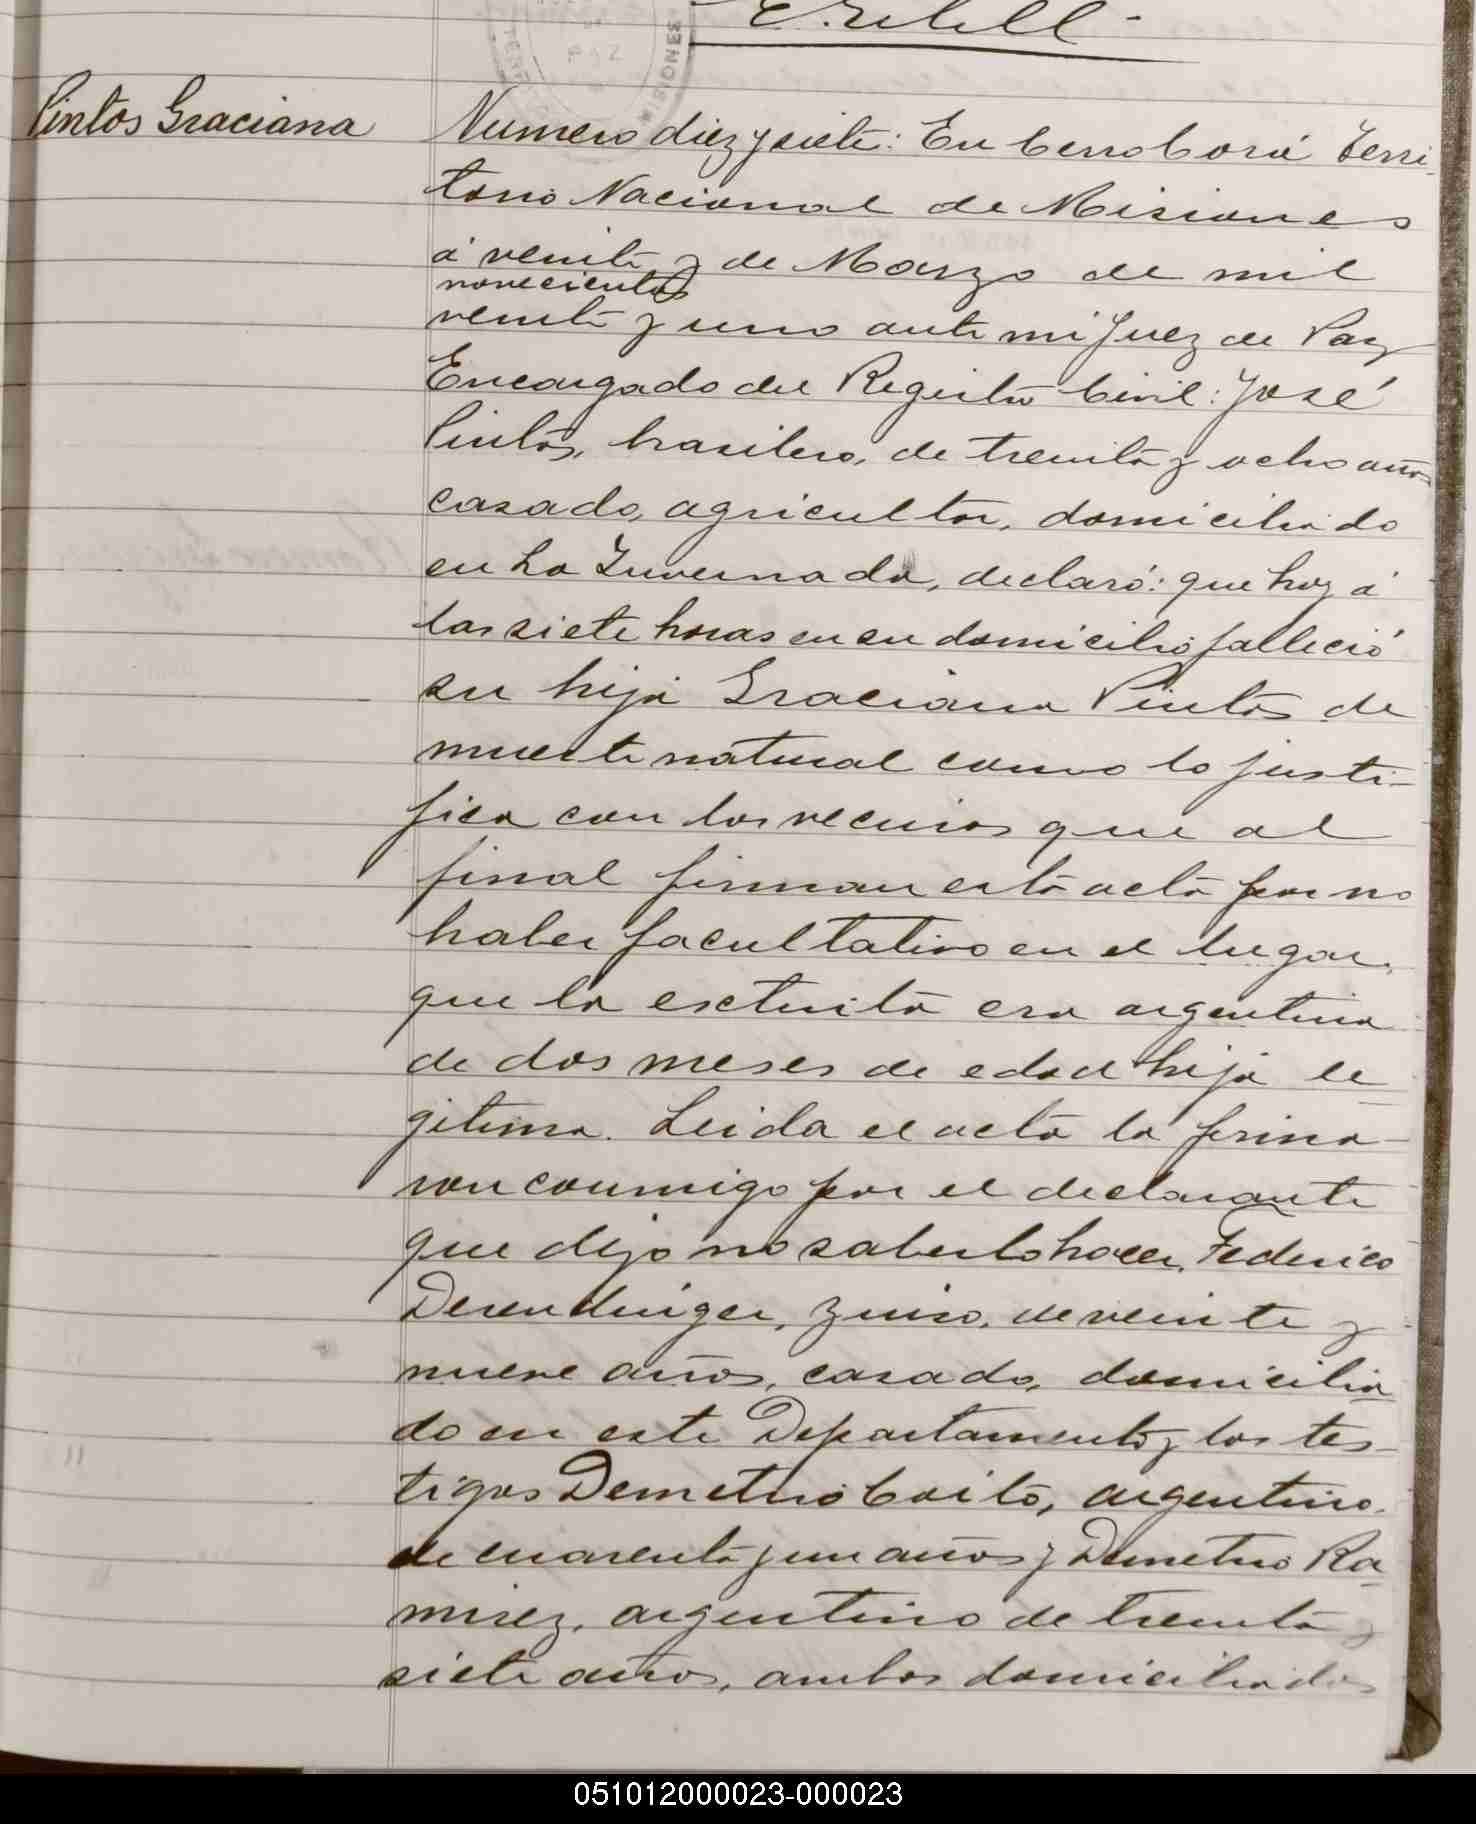 MISIONES
PAZ
Pintos Graciana
Numero diez y siete: En Cerro Corá Terri-
torio Nacional de Misiones
á veinte y de Marzo de mil
novecientos
veinte y uno ante mi Juez de Paz
Encargado del Registro Civil: José
Pintos, brasilero, de treinta y ocho años
casado, agricultor, domiciliado
en La Invernada, declaró: que hoy á
las siete horas en su domicilio falleció
su hija Graciana Pintos de
muerte natural como lo justi-
fica con los vecinos que al
final firman esta acta por no
haber facultativo en el lugar,
que la extinta era argentina
de dos meses de edad hija le-
gitima. Leida el acta la firma-
ron conmigo por el declarante
que dijo no saberlo hacer, Federico
Derendinger, zuiso, de veinte y
nueve años, casado, domicilia
do en este Departamento y los tes-
tigos Demetrio Coito, argentino,
de cuarenta y un años y Demetrio Ra-
mirez, argentino de treinta y
siete años, ambos domiciliados
051012000023-000023